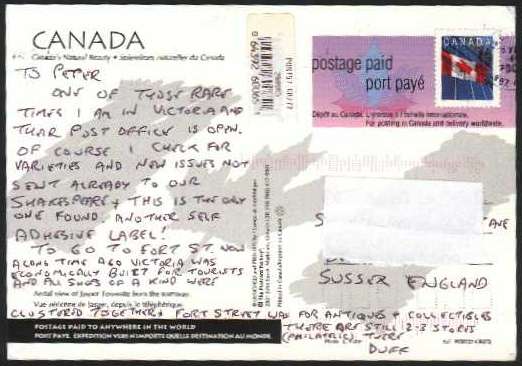 CANADA
Canada's Natural Beauty • Splendeurs naturelles du Canada
TO PETER
ONE OF THOSE RARE
TIMES I AM IN VICTORIA AND
THEIR POST OFFICE IS OPEN.
OF COURSE I CHECK FOR
VARIETIES AND NEW ISSUES NOT
SENT ALREADY TO OUR
SHAKESPEARE & THIS IS THE ONLY
ONE FOUND. ANOTHER SELF
ADHESIVE LABEL!
TO GO TO FORT ST. NOW
A LONG TIME AGO VICTORIA WAS
ECONOMICALLY BUILT FOR TOURISTS
AND ALL SHOPS OF A KIND WERE
Aerial view of Jasper Townsite from the tramway
Vue aérienne de Jasper, depuis le téléphérique
CLUSTERED TOGETHER & FORT STREET WAS FOR ANTIQUES & COLLECTIBLES
THERE ARE STILL 2-3 STORES
(PHILATELIC) THERE
DUFF
POSTAGE PAID TO ANYWHERE IN THE WORLD
PORT PAYÉ. EXPÉDITION VERS N'IMPORTE QUELLE DESTINATION AU MONDE.
postage paid
port payé
Dépôt au Canada. Livraison à l'échelle internationale.
For posting in Canada and delivery worldwide.
CANADA
AVE
SUSSEX ENGLAND